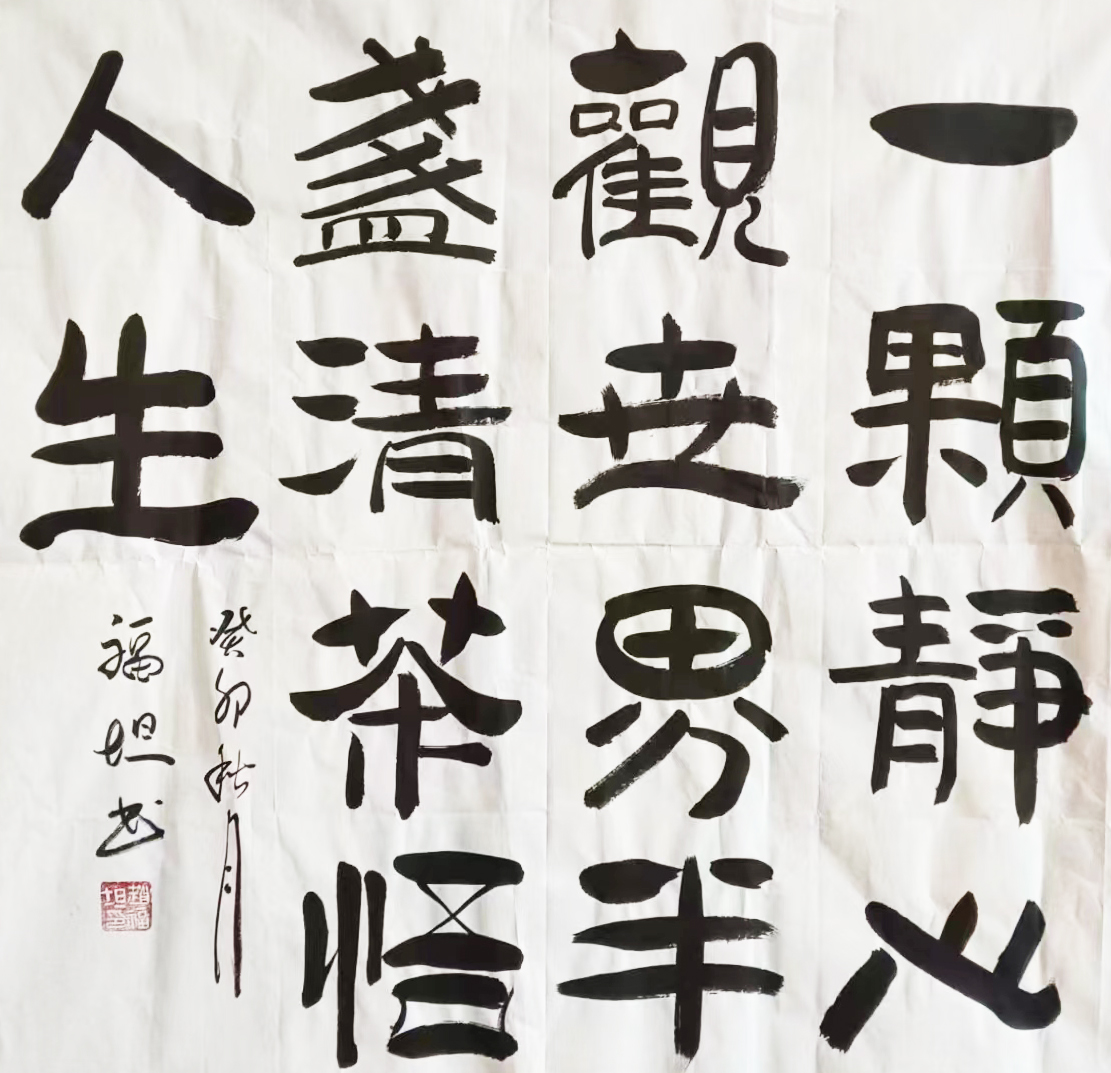 一顆靜心
觀世界半
盞清茶悟
人生
癸卯秋月
福坦书
趙福坦印